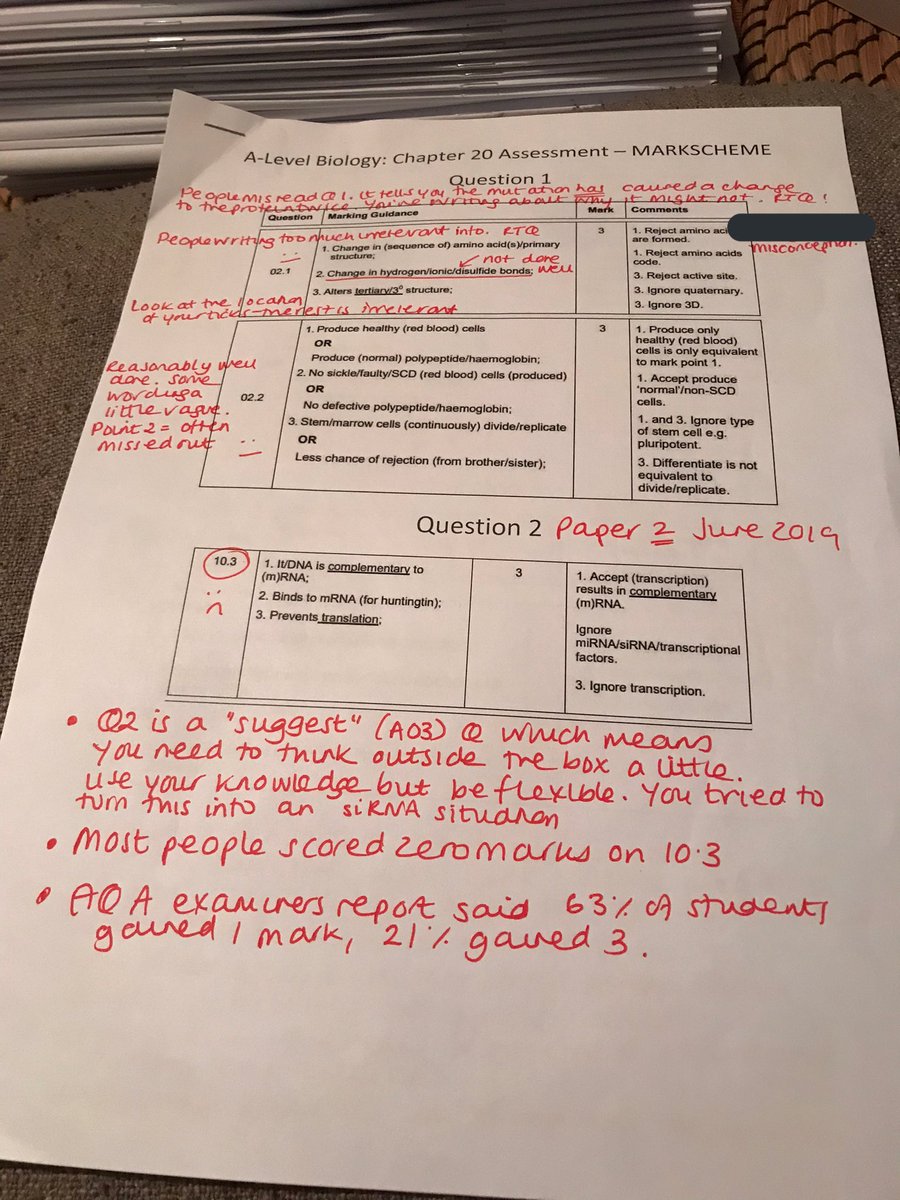 A-Level Biology: Chapter 20 Assessment – MARKSCHEME
Question 1
People misread Q1. It tells you the mutation has caused a change
to the protein twice. You're writing about why it might not. RTQ!
Question Marking Guidance Mark Comments
People writing too much irrelevant info. RTQ
02.1
1. Change in (sequence of) amino acid(s)/primary
structure;
not done
well
2. Change in hydrogen/ionic/disulfide bonds;
3. Alters tertiary/3⁰ structure;
3
1. Reject amino
are formed.
misconception.
1. Reject amino acids
code.
3. Reject active site.
3. Ignore quaternary.
3. Ignore 3D.
Look at the location
of your ticks – the rest is irrelevant
Reasonably well
done. Some
wording a
little vague.
Point 2 = often
missed out
02.2
1. Produce healthy (red blood) cells
OR
Produce (normal) polypeptide/haemoglobin;
2. No sickle/faulty/SCD (red blood) cells (produced)
OR
No defective polypeptide/haemoglobin;
3. Stem/marrow cells (continuously) divide/replicate
OR
Less chance of rejection (from brother/sister);
3
1. Produce only
healthy (red blood)
cells is only equivalent
to mark point 1.
1. Accept produce
'normal'/non-SCD
cells.
1. and 3. Ignore type
of stem cell e.g.
pluripotent.
3. Differentiate is not
equivalent to
divide/replicate.
Question 2 Paper 2 June 2019
10.3
1. It/DNA is complementary to
(m)RNA;
2. Binds to mRNA (for huntingtin);
3. Prevents translation;
3
1. Accept (transcription)
results in complementary
(m)RNA.
Ignore
miRNA/siRNA/transcriptional
factors.
3. Ignore transcription.
• Q2 is a "suggest" (AO3) Q which means
you need to think outside the box a little.
Use your knowledge but be flexible. You tried to
turn this into an siRNA situation
• Most people scored zero marks on 10.3
• AQA examiners report said 63% of students
gained 1 mark, 21% gained 3.